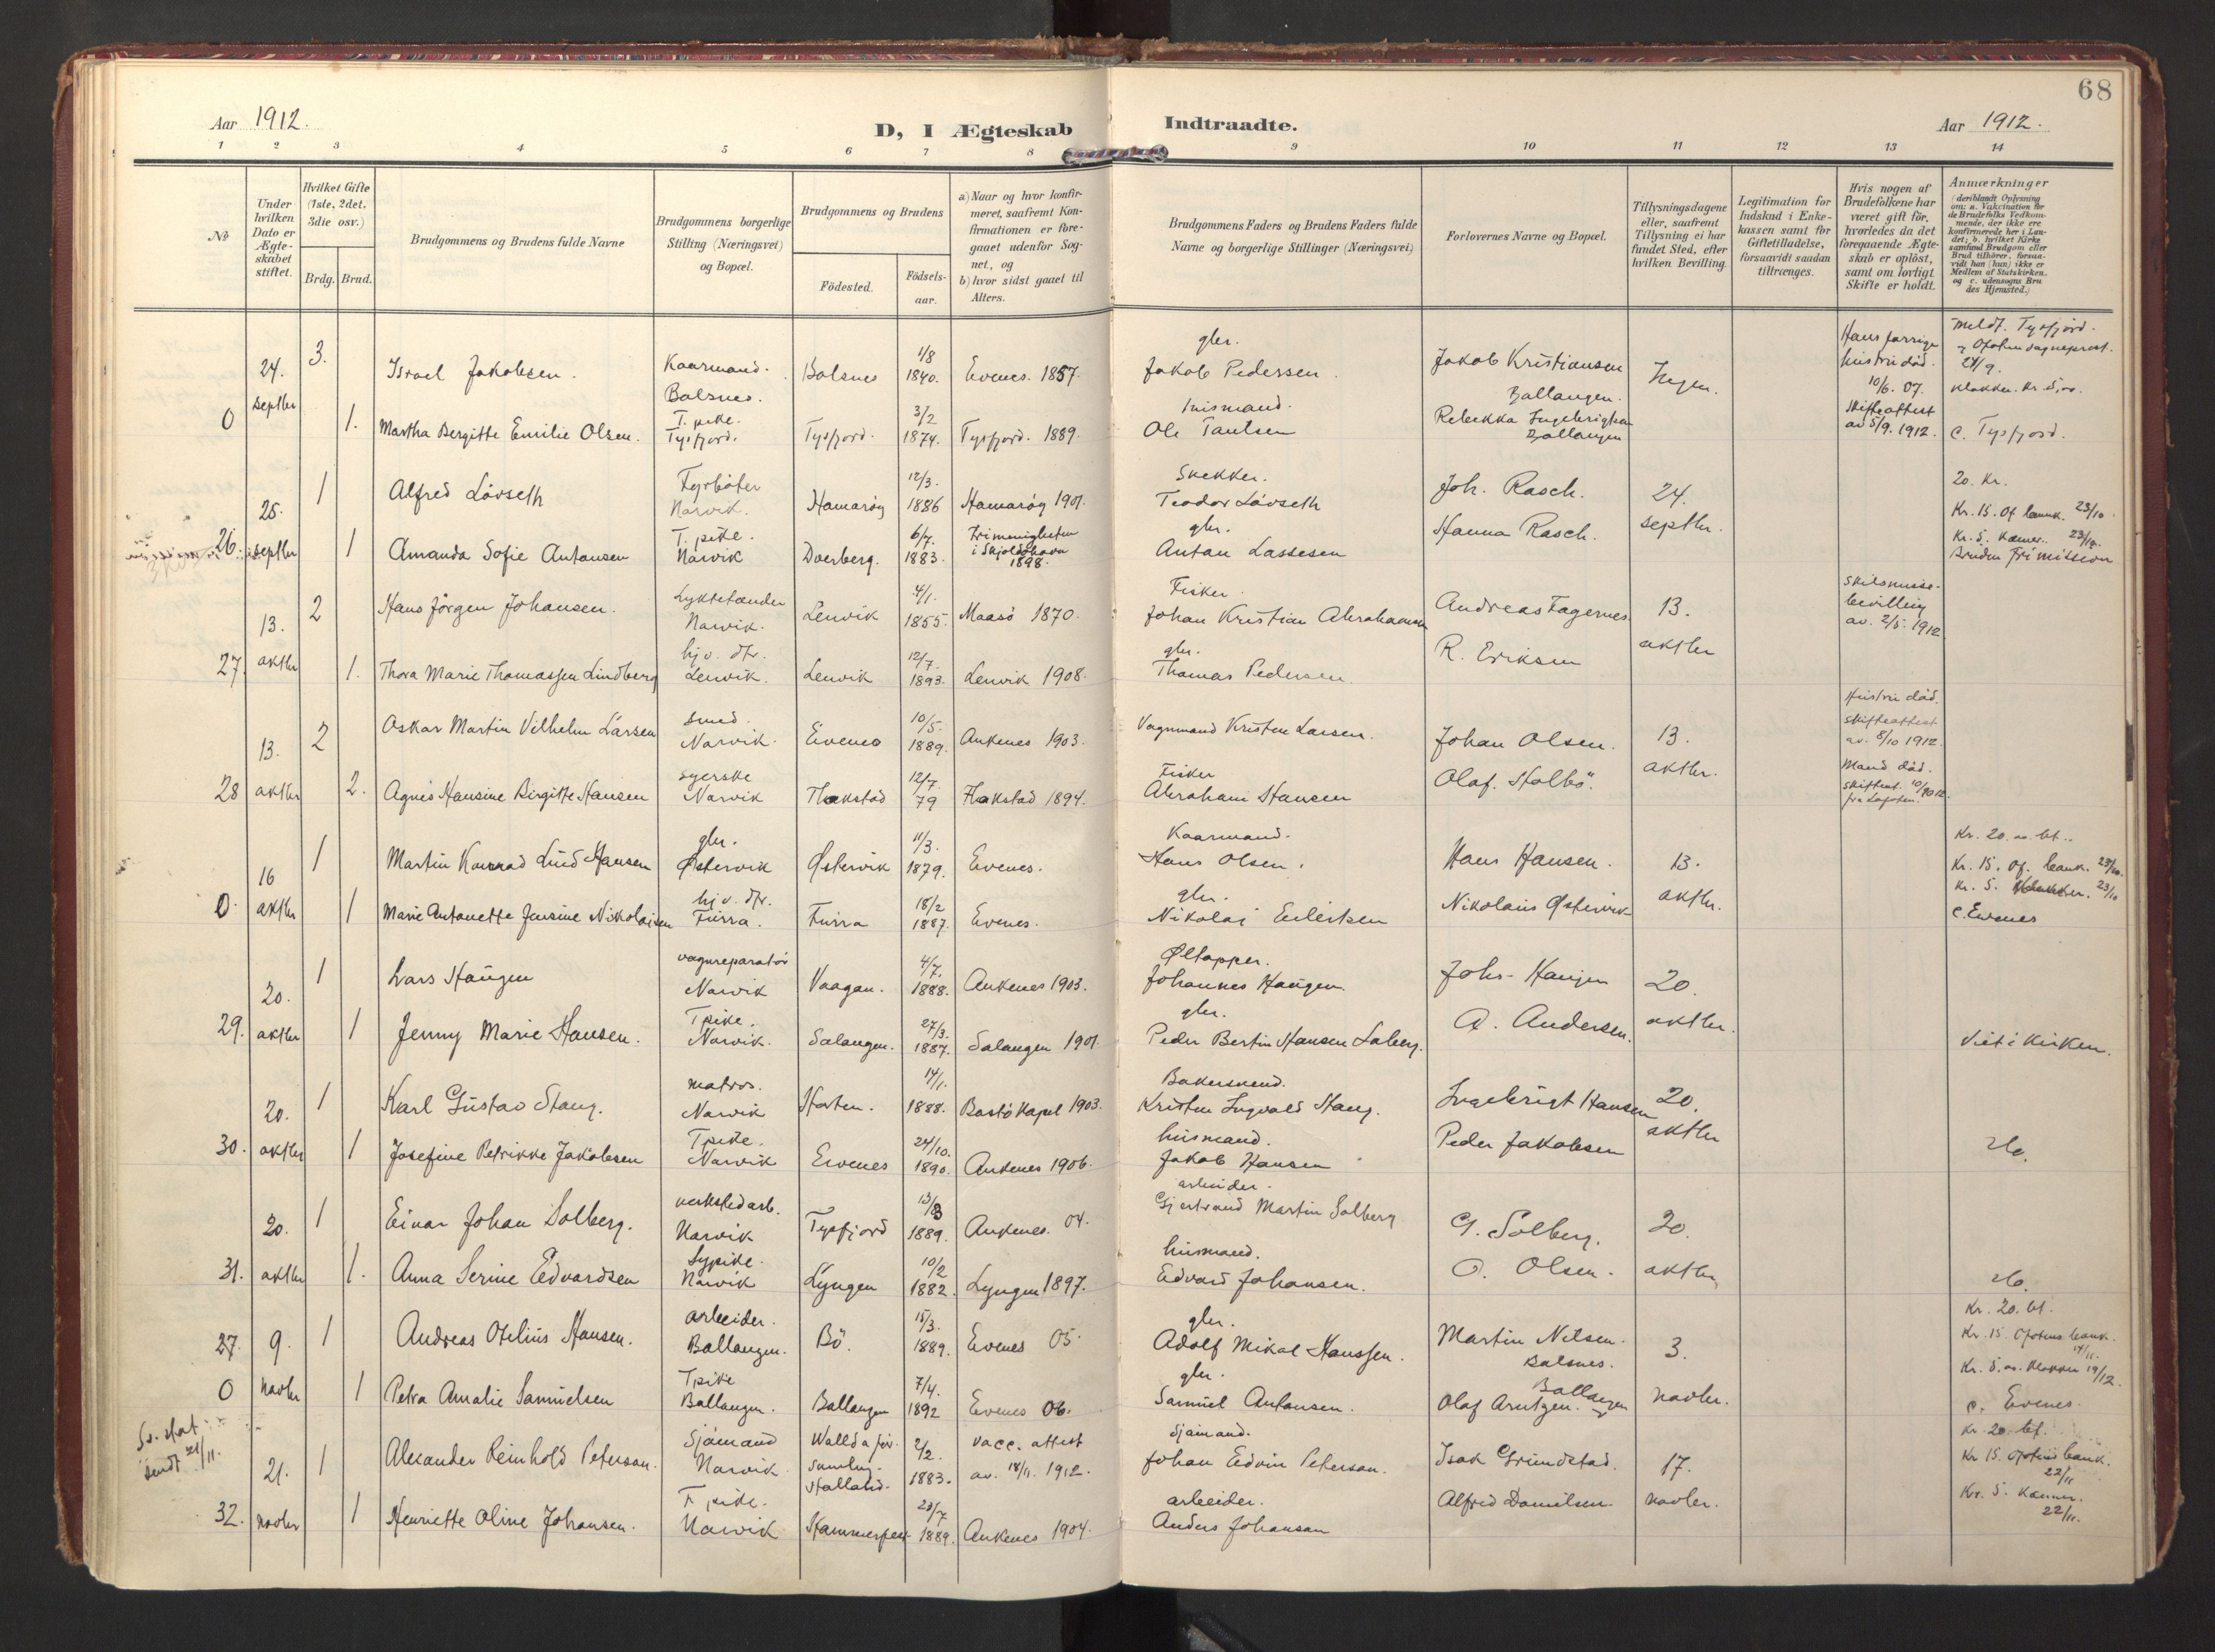 68
Aar 1912.
D, I Ægteskab Indtraadte.
Aar 1912.
1 2 3 4 5 6 7 8 9 10 11 12 13 14
No
Under hvilken Dato er Ægte-skabet stiftet.
Hvilket Gifte (1ste, 2det, 3die osv.)
Brdg. Brud.
Brudgommens og Brudens fulde Navne
Brudgommens borgerlige Stilling (Næringsvei) og Bopæl.
Brudgommens og Brudens
Födested.
Födsels-aar.
a) Naar og hvor konfir-meret, saafremt Kon-firmationen er fore-gaaet udenfor Sog-net, og
b) hvor sidst gaaet til Alters.
Brudgommens Faders og Brudens Faders fulde Navne og borgerlige Stillinger (Næringsvei)
Forlovernes Navne og Bopæl.
Tillysningsdagene eller, saafremt Tillysning ei har fundet Sted, efter hvilken Bevilling.
Legitimation for Indskud i Enke-kassen samt for Giftetilladelse, forsaavidt saadan tiltrænges.
Hvis nogen af Brudefolkene har været gift för, hvorledes da det foregaaende Ægte-skab er oplöst, samt om lovligt Skifte er holdt.
Anmærkninger (deriblandt Oplysning om: a. Vakcination for de Brudefolks Vedkom-mende, der ikke ere konfirmerede her i Lan-det; b. hvilket Kirke-samfund Brudgom eller Brud tilhörer, forsaa-vidt han (hun) ikke er Medlem af Statskirken, og c. udensogns Bru-des Hjemsted.)
24. septbr 3. Israel Jakobsen. Kaarmand. Balsnes. Balsnes 1/8 1840. Evenes. 1857. gbr. Jakob Pedersen. Jakob Kristiansen Ballangen. Ingen. Hans forrige hustru död. 10/6. 07. Meldt. Tysfjord. og Ofoten sogneprest. 24/9. klokker. Kr 5,00.
0 1. Martha Bergitte Emilie Olsen. T. pike. Tysfjord. Tysfjord. 3/2 1874. Tysfjord. 1889. husmand. Ole Paulsen Rebekka Ingebrigtsen Ballangen Skifteattest av 5/9. 1912. c. Tysfjord.
25. 1 Alfred Lövseth Fyrböter Narvik. Hamaröy 12/3. 1886 Hamaröy 1901. Snekker. Teodor Lövseth Joh. Rasch. 24. 20. Kr. Kr. 15. Of. bank. 23/10
26. septbr 1 Amanda Sofie Antonsen T. pike. Narvik Daerberg. 6/7. 1883. Frimenigheten i Skjoldehavn 1898. gbr. Anton Lassesen Hanna Rasch. septbr. Kr. 5. Kæmn. 23/10. Bruden Fri mission
13. 2 Hans Jörgen Johansen. Lyktetænder Narvik. Lenvik 4/1. 1855. Maasö 1870. Fisker. Johan Kristian Abrahamsen Andreas Fagernes 13. Skilsmisse-bevilling av. 2/5. 1912.
27. oktbr 1. Thora Marie Thomassen Lindberg hjv. dtr. Lenvik. Lenvik 12/7. 1893. Lenvik 1908. gbr. Thomas Pedersen. R. Eriksen oktbr
13. 2 Oskar Martin Vilhelm Larsen smed. Narvik. Evenes 10/5. 1889. Ankenes 1903. Vognmand Kristen Larsen. Johan Olsen. 13. Hustru död. skifteattest av. 8/10 1912.
28 oktbr 2. Agnes Hansine Birgitte Hansen syerske Narvik Flakstad 12/7. 79 Flakstad 1894. Fisker Abraham Hansen Olaf. Holbö. oktbr. Mand död. skifteat. 10/10 12. fra Lofoten.
16 1 Martin Konrad Lind Hansen gbr. Østervik Østervik 11/3. 1879. Evenes. Kaarmand. Hans Olsen. Hans Hansen. 13. Kr. 20. bt. Kr. 15. Of. bank. 23/10. Kr. 5. klokker. 23/10
0. oktbr 1 Marie Antonette Jensine Nikolaisen hjv. dtr. Furra. Furra 18/2 1887. Evenes. gbr. Nikolai Eilertsen Nikolaus Østervik oktbr. c. Evenes
20. 1 Lars Haugen vognreparatör Narvik Vaagan. 4/7. 1888. Ankenes 1903. Øltapper. Johannes Haugen. Johs. Haugen 20.
29. oktbr 1 Jenny Marie Hansen. T pike. Narvik. Salangen. 27/3. 1887. Salangen 1901. gbr. Peder Bertin Hansen Laberg. A. Andersen. oktbr. Viet i kirken.
20. 1 Karl Gustav Stang. matros. Narvik Horten. 14/1. 1888. Bastö Kapel 1903. Bakersvend. Kristen Ingvald Stang. Ingebrigt Hansen 20.
30. oktbr 1 Josefine Petrikke Jakobsen T pike. Narvik Evenes 24/10. 1890. Ankenes 1906. husmand. Jakob Hansen Peder Jakobsen oktbr do.
20. 1 Einar Johan Solberg. verkstedarb. Narvik Tysfjord 13/3 1889. Ankenes. 04. arbeider. Gjertrand Martin Solberg G. Solberg. 20.
31. oktbr 1. Anna Serine Edvardsen Sypike. Narvik Lyngen 10/2 1882. Lyngen 1897. husmand. Edvard Johansen. O. Olsen. oktbr do.
27. 9. 1 Andreas Otelius Hansen. arbeider. Ballangen. Bö. 15/3. 1889. Evenes 05. gbr. Adolf Mikal Hanssen. Martin Nilsen. Balsnes. 3. Kr. 20. bt. Kr. 15 Ofotens bank. 14/11. Kr. 5.00. Klokker 19/12.
0 novbr 1 Petra Amalie Samuelsen T pike Ballangen. Ballangen 7/4. 1892 Evenes 06. gbr. Samuel Antonsen. Olaf Arntzen. Ballangen novbr. c. Evenes.
Sv. stat. sendt 21/11.
21. 1 Alexander Reinhold Peterson. Sjömand Narvik. Wallda för-samling. Halland. 2/2. 1883. vacc. attest av. 18/11. 1912. Sjömand. Johan Edvin Peterson. Isak Grundstad. 17. Kr. 20. bt. Kr 15. Ofotens bank. 22/11
32. novbr 1 Henriette Oline Johansen. T pike. Narvik Hammerfest 23/7 1889. Ankenes 1904. arbeider. Anders Johansen Alfred Danielsen. novbr. Kr. 5. Kæmn. 22/11.